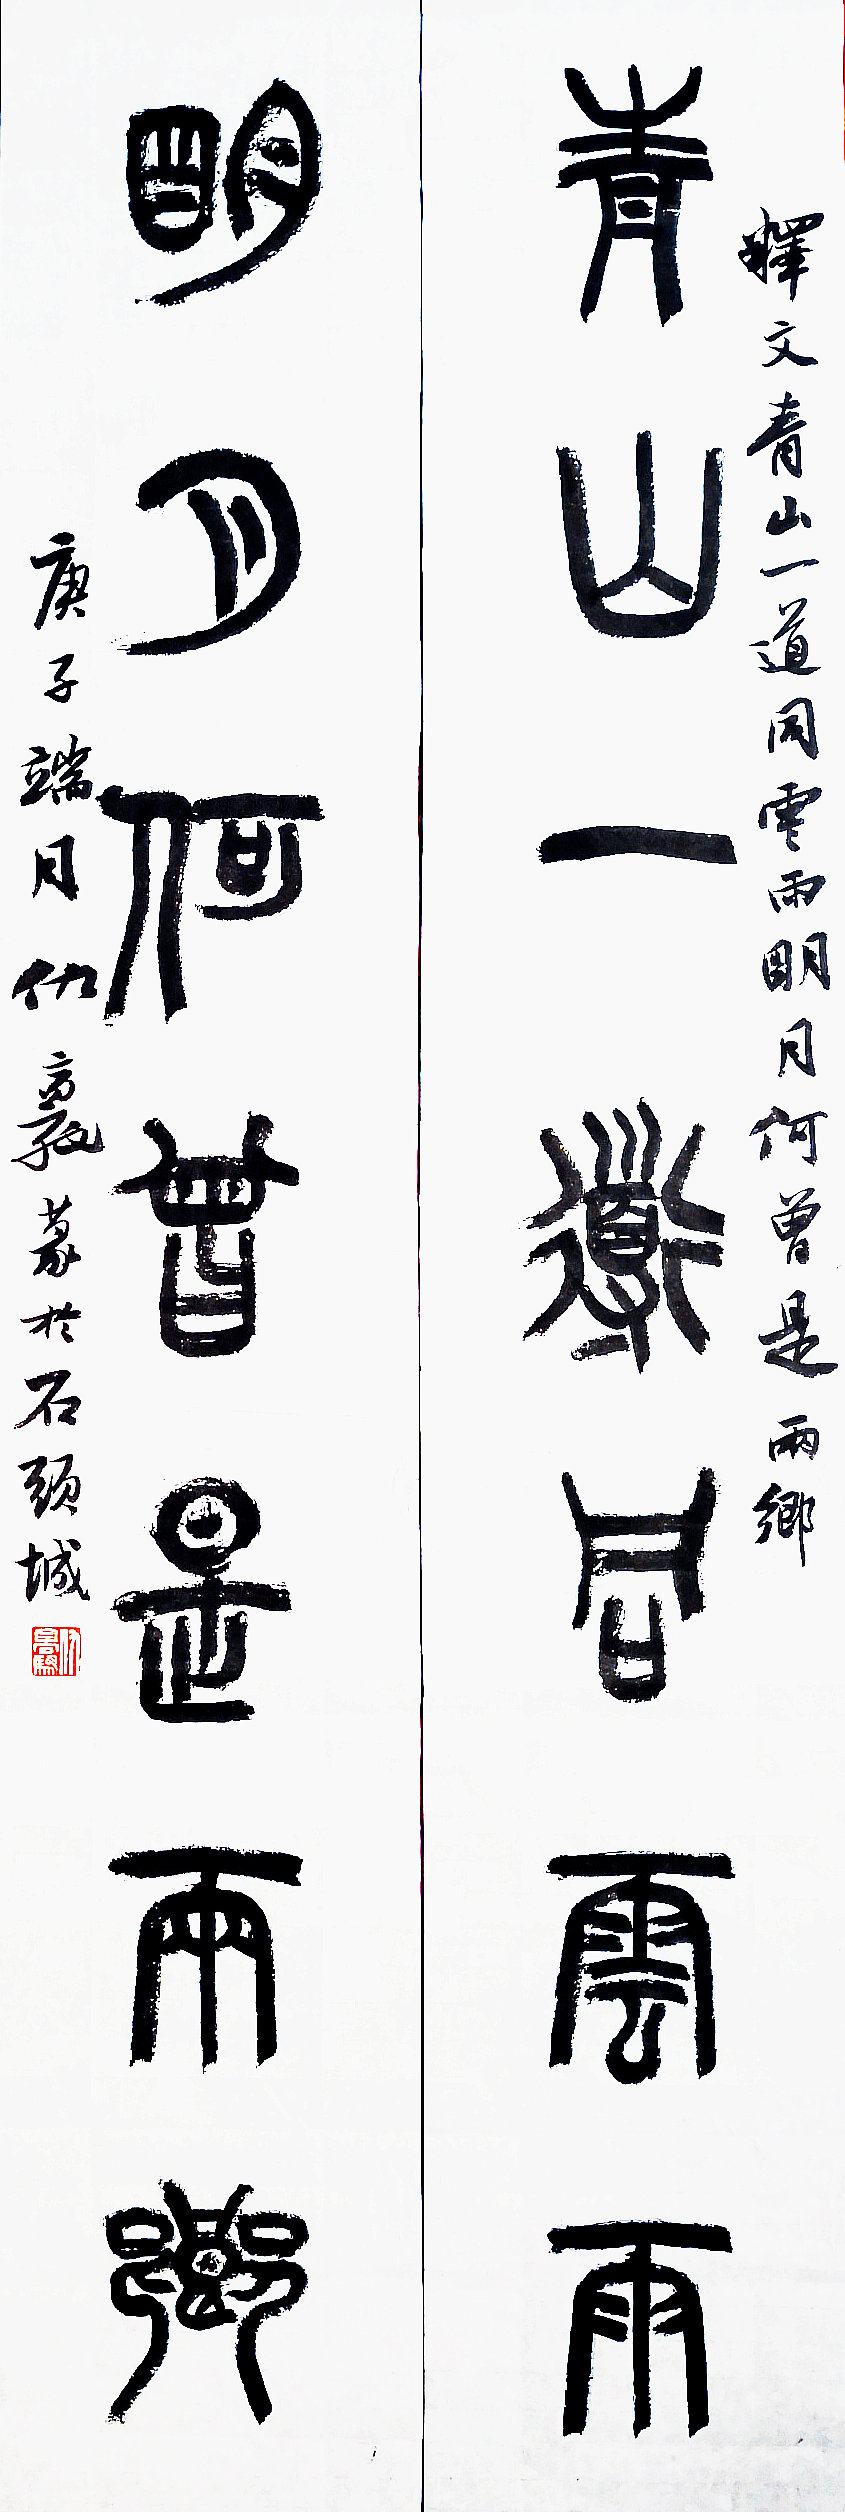 釋文青山一道同雲雨明月何曾是兩鄉
青山一道同雲雨
明月何曾是兩鄉
庚子端月仇敦篆於石頭城